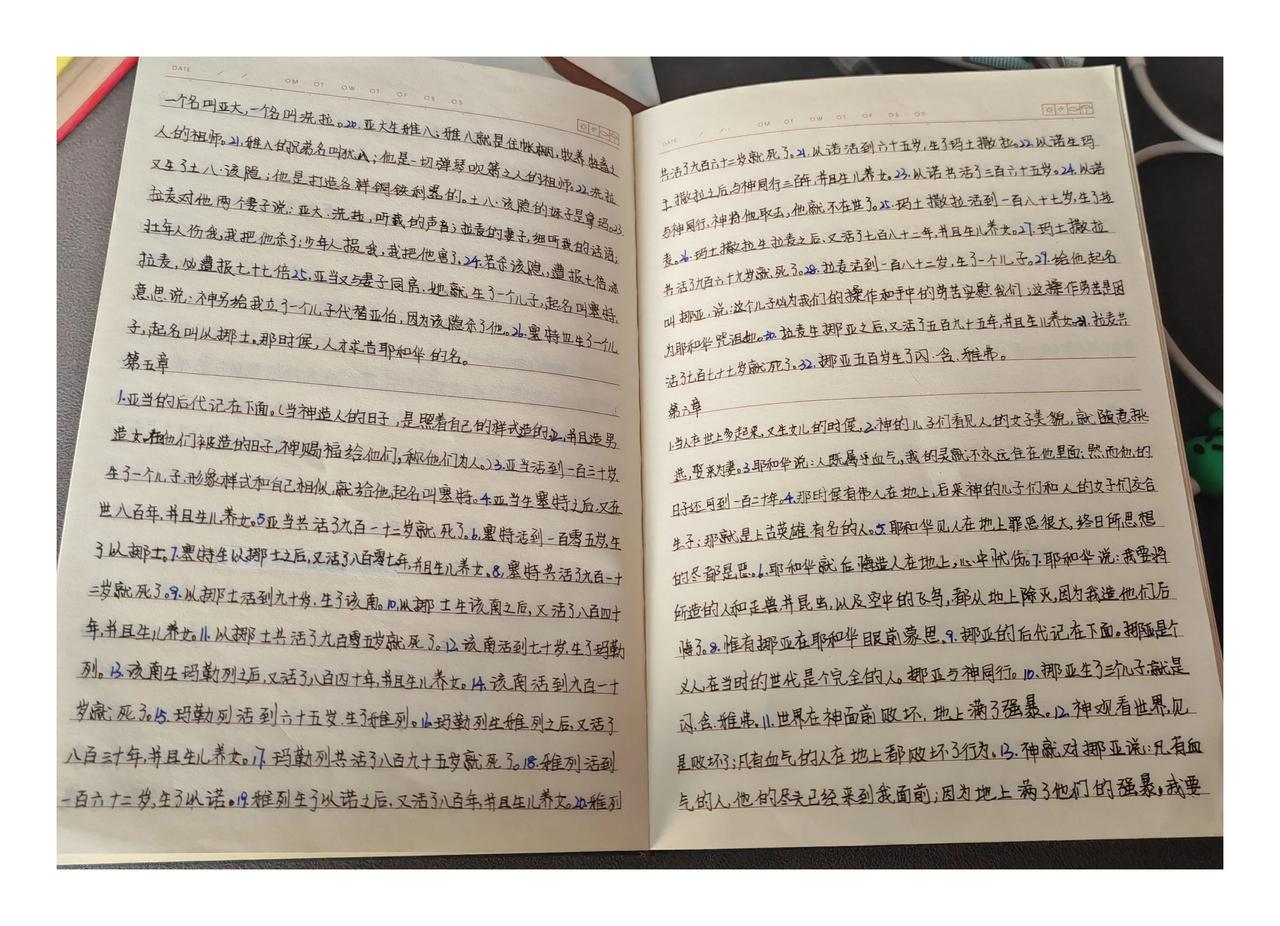 DATE / / OM OT OW OT OF OS OS
一个名叫亚大,一个名叫洗拉。20.亚大生雅八;雅八就是住帐棚,牧养牲畜之
人的祖师。21.雅八的兄弟名叫犹八;他是一切弹琴吹箫之人的祖师。22.洗拉
又生了土八·该隐;他是打造各样铜铁利器的。土八·该隐的妹子是拿玛。23.
拉麦对他两个妻子说:亚大、洗拉,听我的声音;拉麦的妻子,细听我的话语;
壮年人伤我,我把他杀了;少年人损我,我把他害了。24.若杀该隐,遭报七倍,杀
拉麦,必遭报七十七倍25.亚当又与妻子同房,她就生了一个儿子,起名叫塞特,
意思说:神另给我立了一个儿子代替亚伯,因为该隐杀了他。26.塞特也生了一个儿
子,起名叫以挪士。那时候,人才求告耶和华的名。
第五章
1.亚当的后代记在下面。(当神造人的日子,是照着自己的样式造的,2.并且造男
造女。在他们被造的日子,神赐福给他们,称他们为人。)3.亚当活到一百三十岁,
生了一个儿子,形象样式和自己相似,就给他起名叫塞特。4.亚当生塞特之后,又在
世八百年,并且生儿养女。5亚当共活了九百一十二岁就死了。6.塞特活到一百零五岁,生
了以挪士。7.塞特生以挪士之后,又活了八百零七年,并且生儿养女。8.塞特共活了九百一十
二岁就死了。9.以挪士活到九十岁,生了该南。10.以挪士生该南之后,又活了八百四十
年,并且生儿养女。11.以挪士共活了九百零五岁就死了。12.该南活到七十岁,生了玛勒
列。13.该南生玛勒列之后,又活了八百四十年,并且生儿养女。14.该南活到九百一十
岁就死了。15.玛勒列活到六十五岁,生了雅列。16.玛勒列生雅列之后,又活了
八百三十年,并且生儿养女。17.玛勒列共活了八百九十五岁就死了。18.雅列活到
一百六十二岁,生了以诺。19.雅列生了以诺之后,又活了八百年,并且生儿养女。20.雅列
DATE / / OM OT OW OT OF OS OS
共活了九百六十二岁就死了。21.以诺活到六十五岁,生了玛土撒拉。22.以诺生玛
土撒拉之后,与神同行三百年,并且生儿养女。23.以诺共活了三百六十五岁。24.以诺
与神同行,神将他取去,他就不在世了。25.玛土撒拉活到一百八十七岁,生了拉
麦。26.玛土撒拉生拉麦之后,又活了七百八十二年,并且生儿养女。27.玛土撒拉
共活了九百六十九岁就死了。28.拉麦活到一百八十二岁,生了一个儿子。29.给他起名
叫挪亚,说:这个儿子必为我们的操作和手中的劳苦安慰我们;这操作劳苦是因
为耶和华咒诅地。30.拉麦生挪亚之后,又活了五百九十五年,并且生儿养女。31.拉麦共
活了七百七十七岁就死了。32.挪亚五百岁生了闪·含·雅弗。
第六章
1.当人在世上多起来,又生女儿的时候,2.神的儿子们看见人的女子美貌,就随意挑
选,娶来为妻。3.耶和华说:人既属乎血气,我的灵就不永远住在他里面;然而他的
日子还可到一百二十年。4.那时候有伟人在地上,后来神的儿子们和人的女子们交合
生子;那就是上古英雄有名的人。5.耶和华见人在地上罪恶很大,终日所思想
的尽都是恶。6.耶和华就后悔造人在地上,心中忧伤。7.耶和华说:我要将
所造的人和走兽并昆虫,以及空中的飞鸟,都从地上除灭,因为我造他们后
悔了。8.惟有挪亚在耶和华眼前蒙恩。9.挪亚的后代记在下面。挪亚是个
义人,在当时的世代是个完全的人。挪亚与神同行。10.挪亚生了三个儿子,就是
闪、含、雅弗。11.世界在神面前败坏,地上满了强暴。12.神观看世界,见
是败坏了;凡有血气的人在地上都败坏了行为。13.神就对挪亚说:凡有血
气的人,他的尽头已经来到我面前;因为地上满了他们的强暴,我要